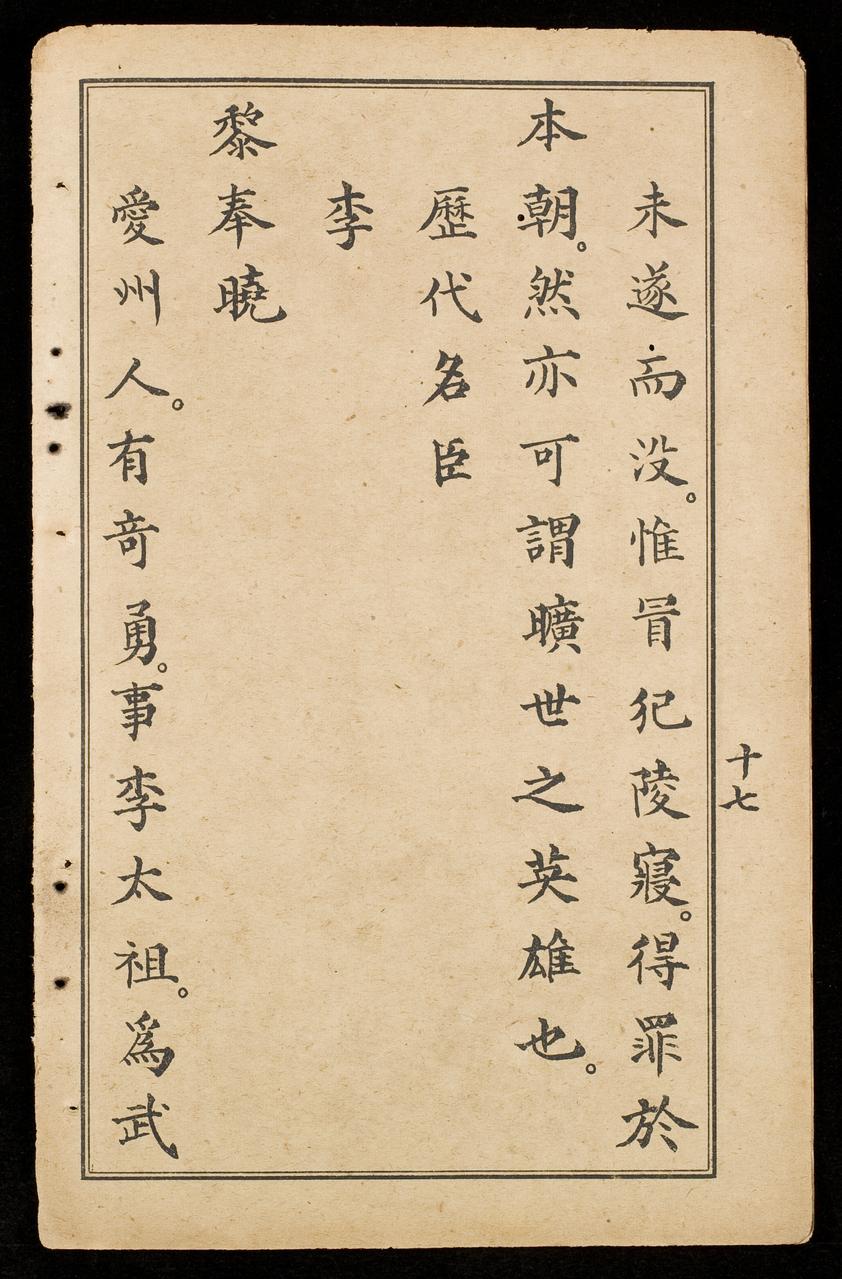 未遂而没。惟冐犯陵寢。得罪於
本朝。然亦可謂曠世之英雄也。
歷代名臣
李
黎奉曉
愛州人。有竒勇。事李太祖。爲武
十七